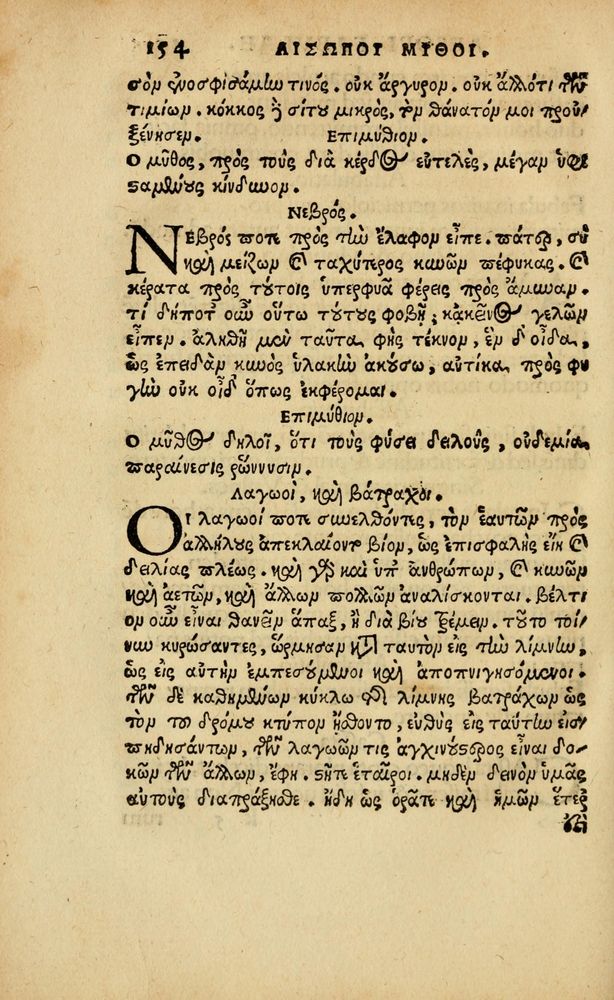 154 ΑΙΣΩΠΟΥ ΜΥΘΟΙ.
σὸν ἐνοσφισάμην τινός. οὐκ ἄργυρον. οὐκ ἄλλό τι τῶν
τιμίων. κόκκος ἢ σίτου μικρὸς, τὸν θάνατόν μοι προὐ-
ξένησεν. Ἐπιμύθιον.
Ο μῦθος, πρὸς τοὺς διὰ κέρδος εὐτελὲς, μέγαν ὑπο
στάντας κίνδυνον.
Νεβρός.
ΝΕβρός ποτε πρὸς τὴν ἔλαφον εἶπε. πάτερ, σὺ
καὶ μείζων καὶ ταχύτερος κυνῶν πέφυκας. καὶ
κέρατα πρὸς τούτοις ὑπερφυᾶ φέρεις πρὸς ἄμυναν.
τί δήποτ' οὖν οὕτω τούτους φοβῇ; κἀκεῖνος γελῶν
εἶπεν. ἀληθῆ μὲν ταῦτα φὴς τέκνον, ἓν δ' οἶδα,
ὡς ἐπειδὰν κυνὸς ὑλακὴν ἀκούσω, αὐτίκα πρὸς φυ
γὴν οὐκ οἶδ' ὅπως ἐκφέρομαι.
Ἐπιμύθιον.
Ο μῦθος δηλοῖ, ὅτι τοὺς φύσει δειλοὺς, οὐδεμία
παραίνεσις ῥώννυσιν.
Λαγωοὶ, καὶ βάτραχοι.
ΟΙ λαγωοί ποτε συνελθόντες, τὸν ἑαυτῶν πρὸς
ἀλλήλους ἀπεκλαίοντο βίον, ὡς ἐπισφαλὴς εἴη καὶ
δειλίας πλέως. καὶ γὰρ καὶ ὑπ' ἀνθρώπων, καὶ κυνῶν
καὶ ἀετῶν, καὶ ἄλλων πολλῶν ἀναλίσκονται. βέλτι
ον οὖν εἶναι θανεῖν ἅπαξ, ἢ διὰ βίου τρέμειν. τοῦτο τοί-
νυν κυρώσαντες, ὥρμησαν κατὰ ταυτὸν εἰς τὴν λίμνην,
ὡς εἰς αὐτὴν ἐμπεσούμενοι καὶ ἀποπνιγησόμενοι.
τῶν δὲ καθημένων κύκλω τῆς λίμνης βατράχων ὡς
τὸν τοῦ δρόμου κτύπον ᾔσθοντο, εὐθὺς εἰς ταύτην εἰσ-
πηδησάντων, τῶν λαγωῶν τις ἀγχινούστερος εἶναι δο-
κῶν τῶν ἄλλων, ἔφη. στῆτε ἑταῖροι. μηδὲν δεινὸν ὑμᾶς
αὐτοὺς διαπράξησθε. ἤδη ὡς ὁρᾶτε καὶ ἡμῶν ἕτερ'